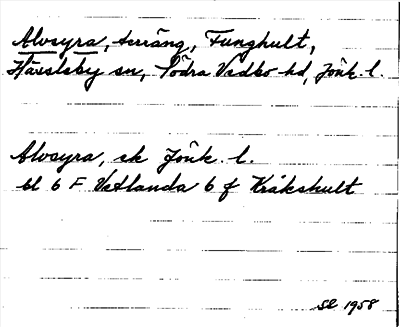 Alvsyra, terräng, Funghult,
Hässleby sn, Södra Vedbo hd, Jönk. l.
Alvsyra, ek Jönk. l.
bl 6 F Vetlanda 6 f Kråkshult
1958